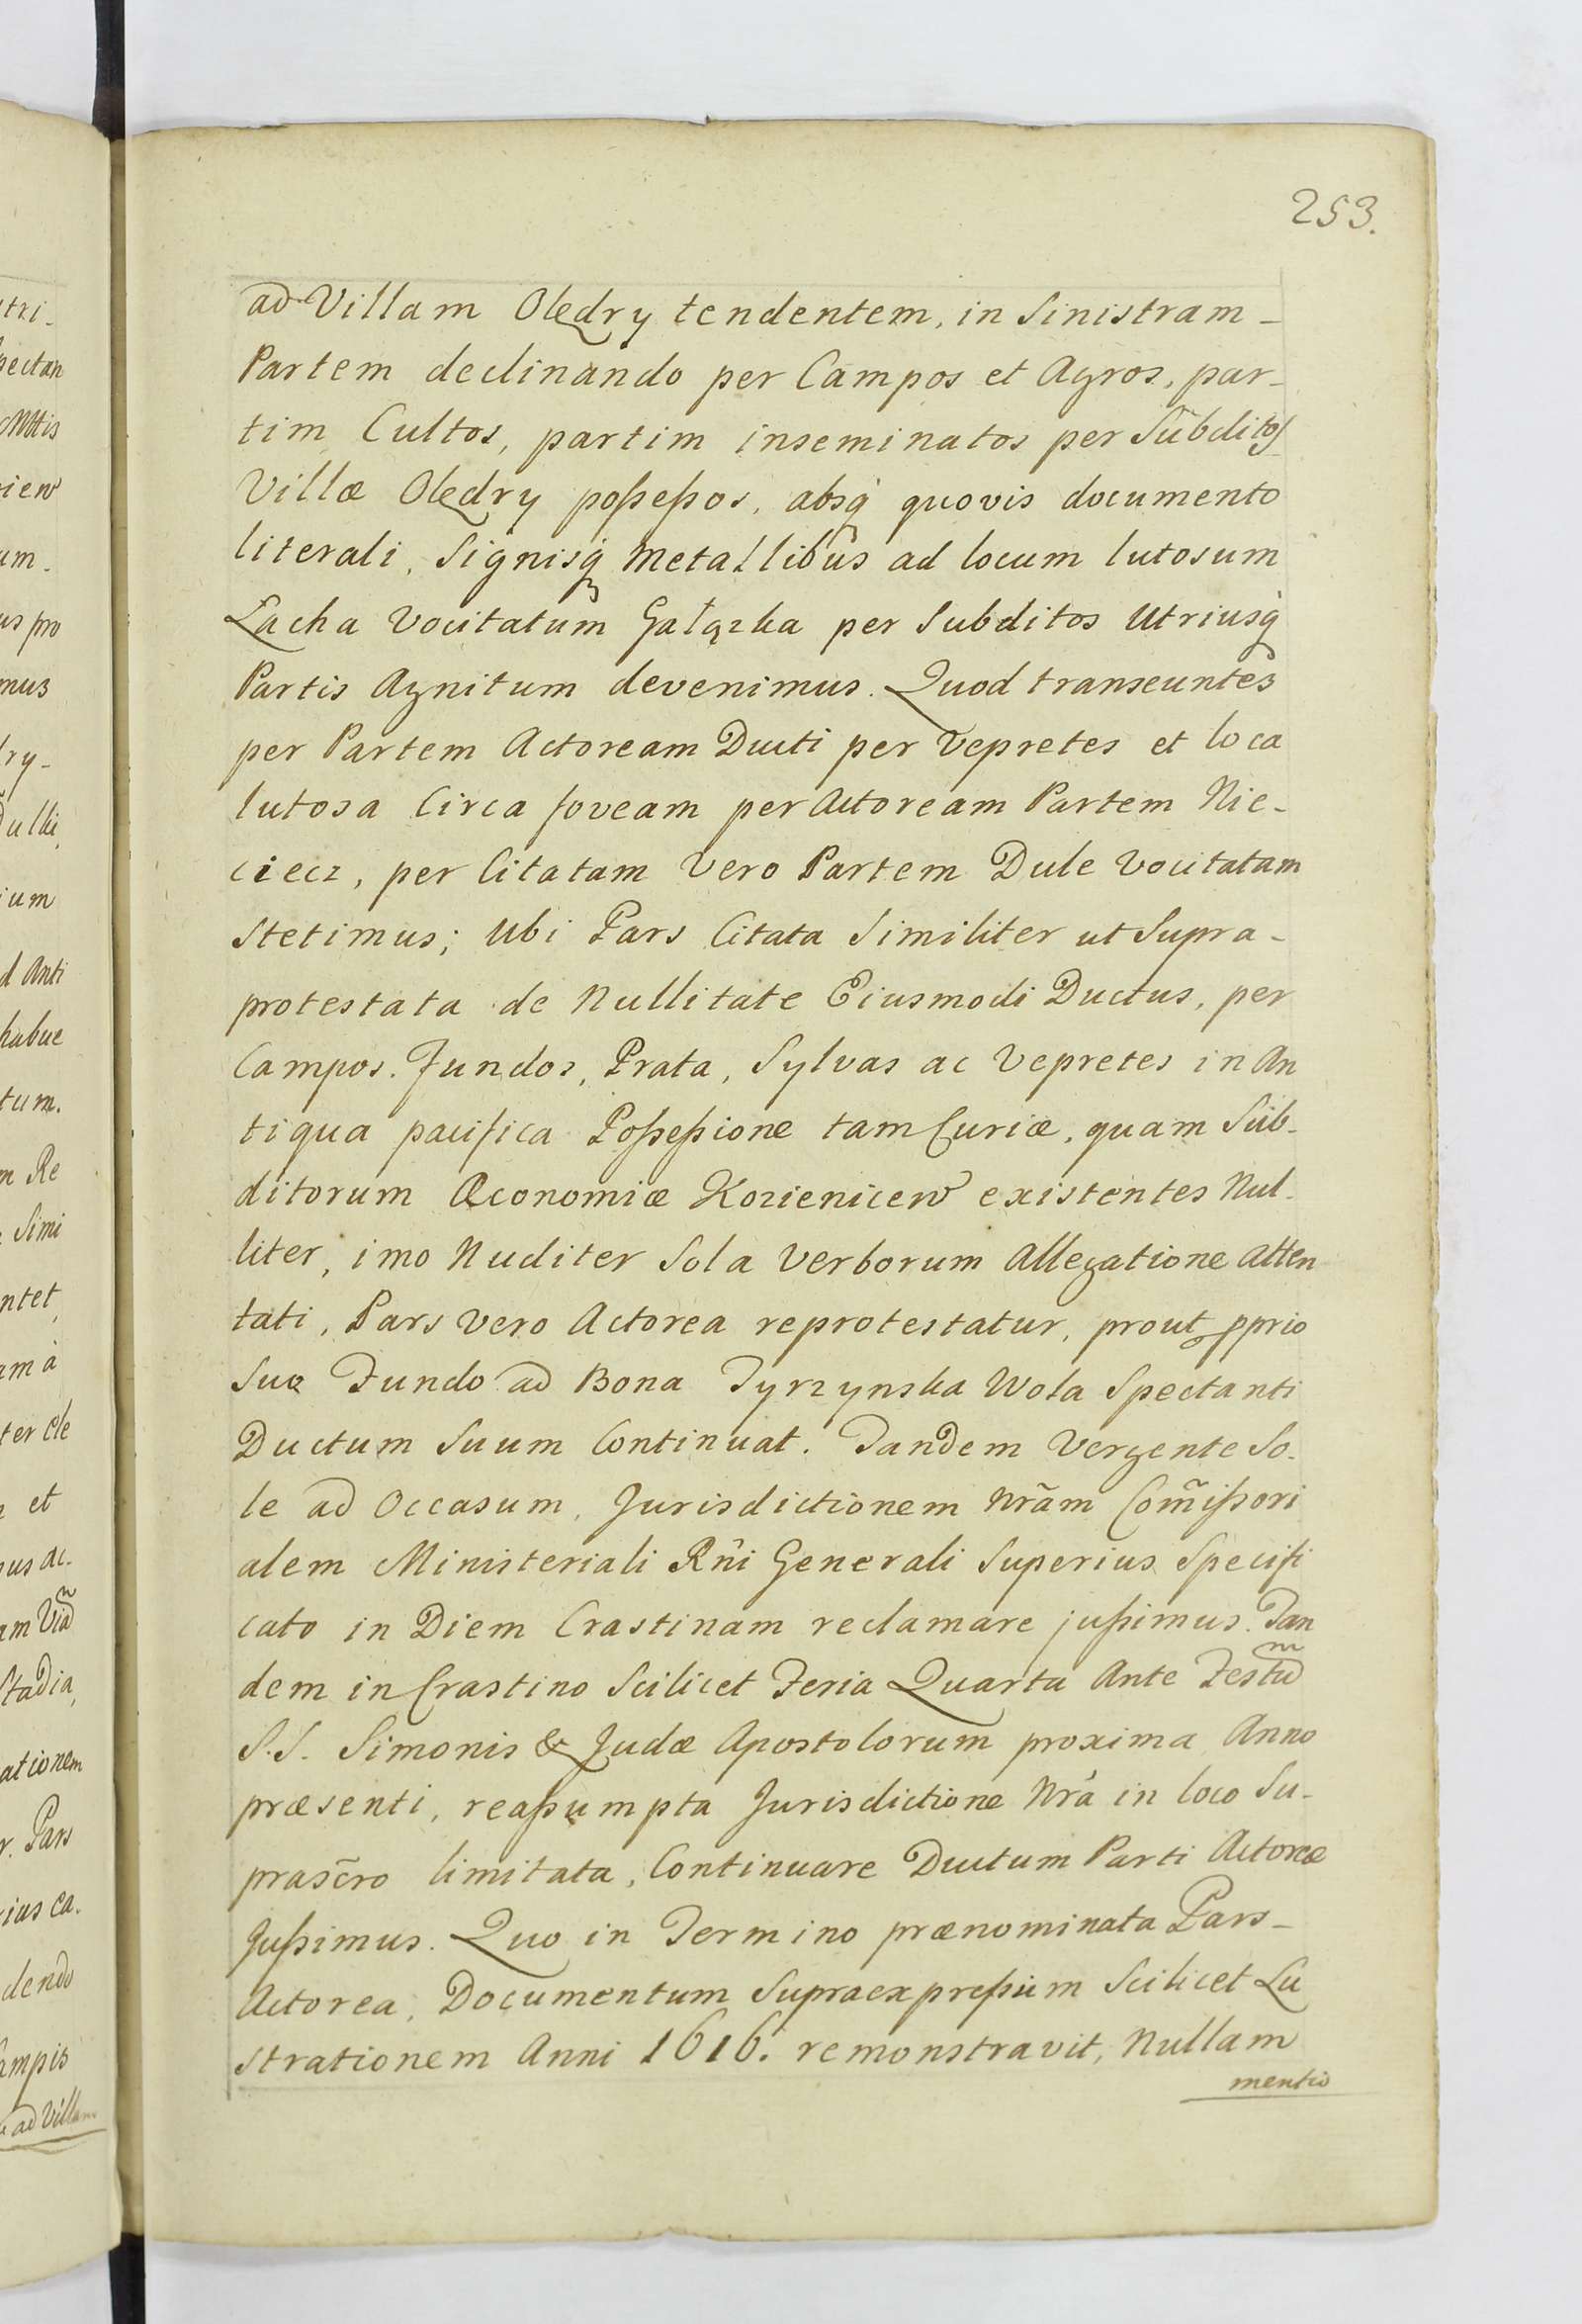 253.
ad Villam Olędry tendentem, in Sinistram -
Partem declinando per Campos et Agros, par-
tim Cultos, partim inseminatos per Sûbditos
Villæ Olędry poßeßos, absq́ quovis documento
literali, Signisq́ Metallibûs ad locum lutosum
Łacha Vocitatûm Gałązka per Subditos Utriusq́
Partis Agnitum devenimus. Quod transeuntes
per Partem Actoream Ducti per Vepretes et loca
lutosa Circa foveam per Actoream Partem Nie-
ciecz, per Citatam Vero Partem Dule Vocitatam
Stetimus; Ubi Pars Citata Similiter ut Supra -
protestata de Nullitate Eiusmodi Ductus, per
Campos. Fundos, Prata, Sylvas ac Vepretes in An
tiqua pacifica Poßeßione tam Curiæ, quam Sub-
ditorum Œconomiæ Kozienicen existentes Nul-
liter, imo Nuditer Sola Verborum Allegatione atten
tati, Pars Vero Actorea reprotestatur, prout pprio
Suo Fundo ad Bona Tyrzynska Wola Spectanti
Ductum Suum Continuat. Tandem Vergente So-
le ad Occasum, Jurisdictionem Nrãm Com̃ißori
alem Ministeriali Rñi Generali Superius Specifi
cato in Diem Crastinam reclamare jußimus. Tan
dem in Crastino Scilicet Feria Quarta Ante Festũ
S.S. Simonis & Judæ Apostolorum proxima Anno
præsenti, reaßumpta Jurisdictione Nrã in loco Su-
prasc̃ro limitata, Continuare Ductum Parti Actoreæ
Jußimus. Quo in Termino prænominata Pars -
Actorea, Documentum Supraexpreßum Scilicet Lu
strationem Anni 1616. remonstravit, Nullam
mentio
tri-
pectan
Mttis
um-
us pro
mus
ry-
ulki,
ium
d Anti
habue
tum.
m Re
Simi
ntet,
am à
ter cle
et
us ac-
am Viã
Stadia,
ationem
r. Pars
ius ca-
dendo
ampis
ad Villam